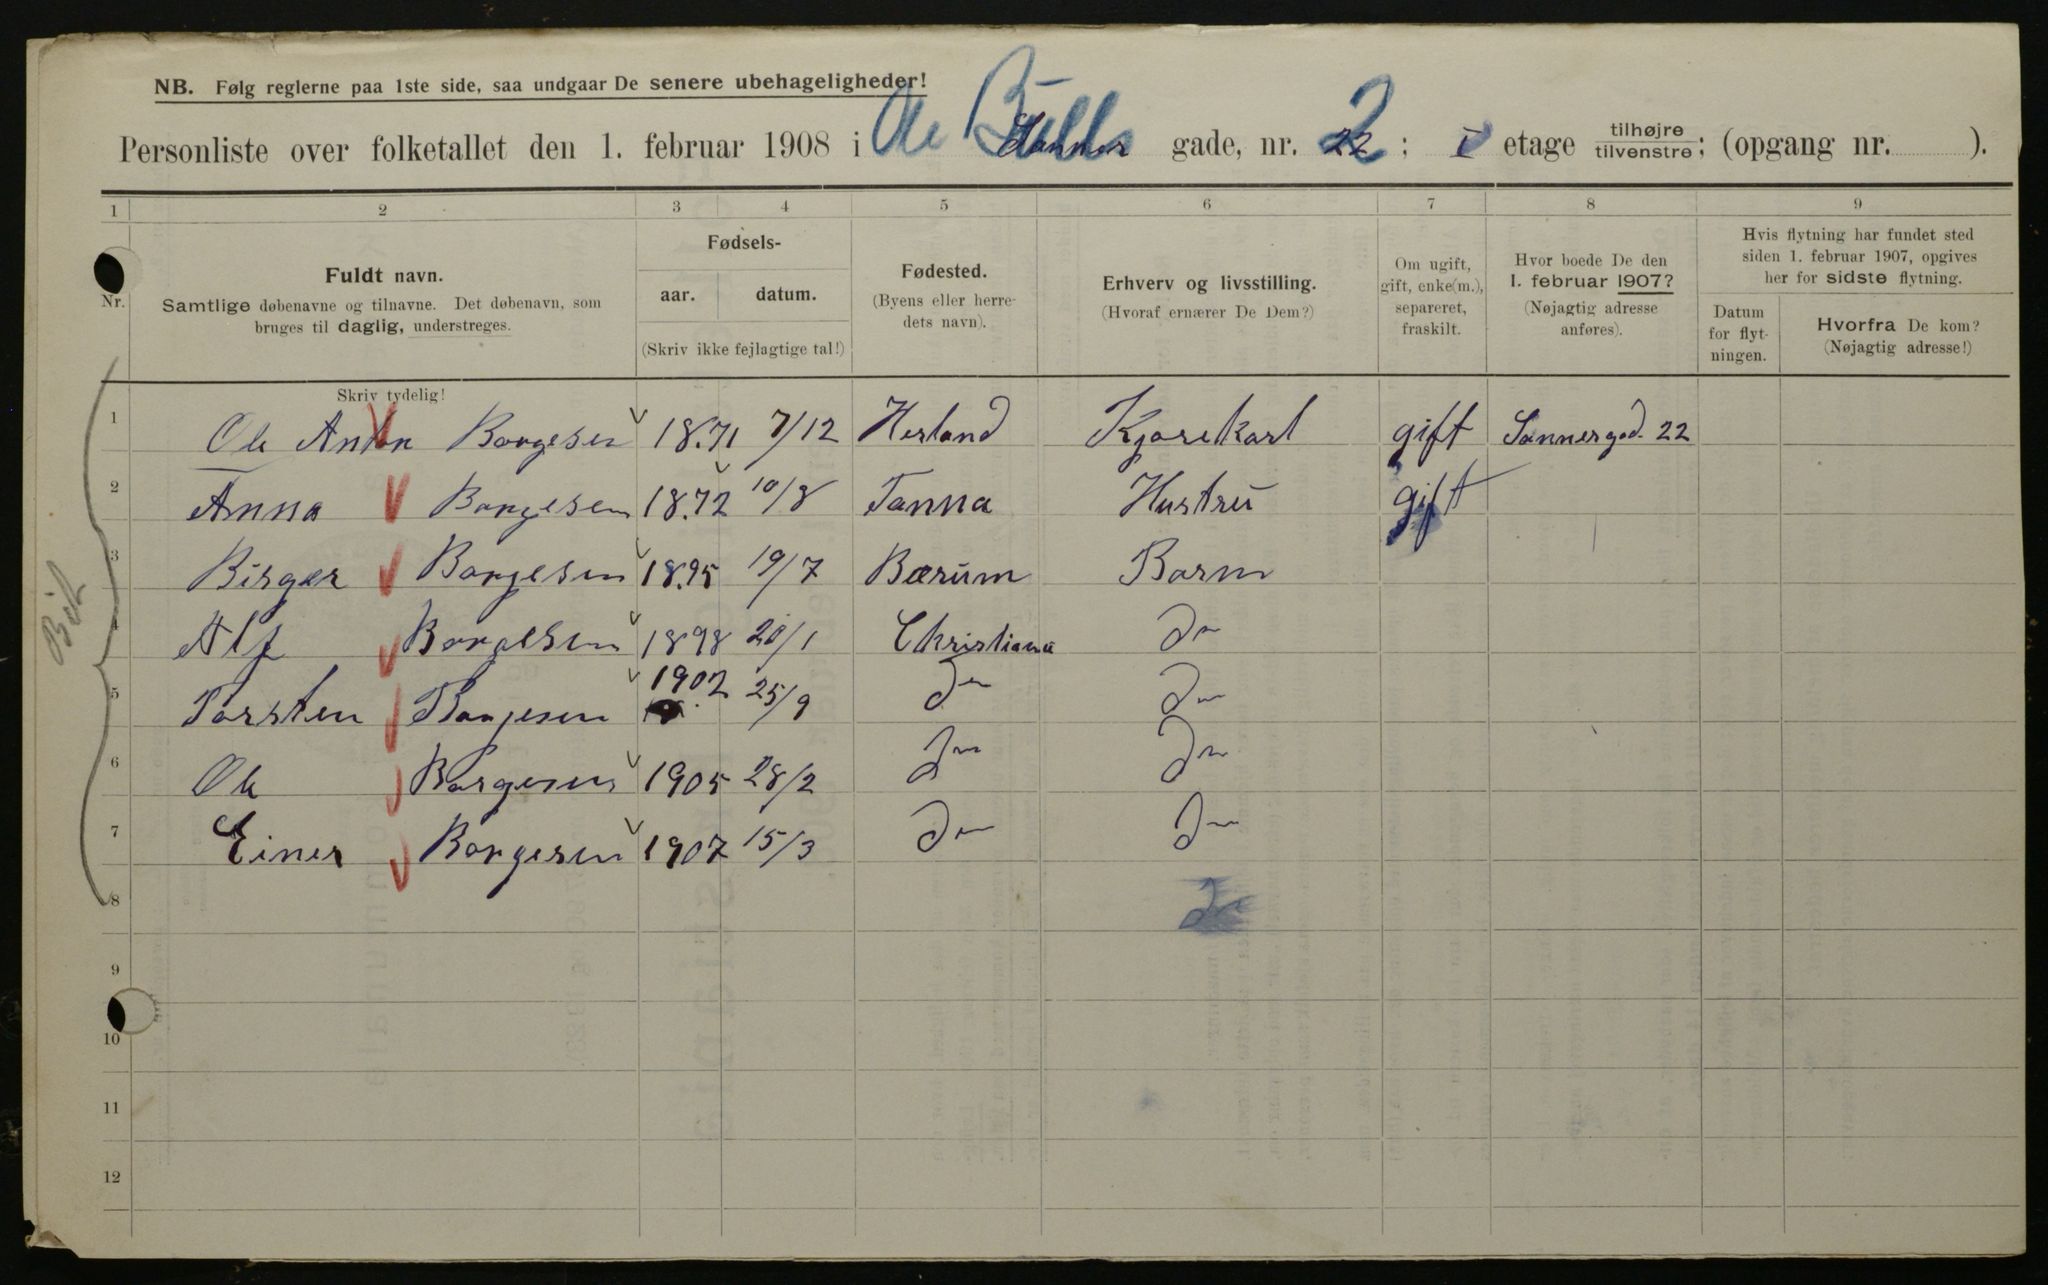 NB. Følg reglerne paa 1ste side, saa undgaar De senere ubehageligheder!
Personliste over folketallet den 1. februar 1908 i Ole Bulls Sanner gade, nr. 22 2 ; I etage tilhøjre / tilvenstre ; (opgang nr. ).
1 2 3 4 5 6 7 8 9
Nr.
Fuldt navn.
Samtlige døbenavne og tilnavne. Det døbenavn, som
bruges til daglig, understreges.
Skriv tydelig!
Fødsels-
aar. datum.
(Skriv ikke fejlagtige tal!)
Fødested.
(Byens eller herre-
dets navn).
Erhverv og livsstilling.
(Hvoraf ernærer De Dem?)
Om ugift,
gift, enke(m.),
separeret,
fraskilt.
Hvor boede De den
1. februar 1907?
(Nøjagtig adresse
anføres).
Hvis flytning har fundet sted
siden 1. februar 1907, opgives
her for sidste flytning.
Datum
for flyt-
ningen.
Hvorfra De kom?
(Nøjagtig adresse!)
1 Ole Anton Borgesen 1871 7/12 Herland Kjørekarl gift Sannergad. 22
2 Anna Borgesen 1872 10/8 Tanna Hustru gift
3 Birger Borgesen 1895 19/7 Bærum Barn
4 Alf Borgesen 1898 20/1 Christiana Do
5 Torsten Borgesen 1902 25/9 Do Do
6 Ole Borgesen 1905 28/2 Do Do
7 Einer Borgesen 1907 15/3 Do Do
8 Do
9
10
11
12